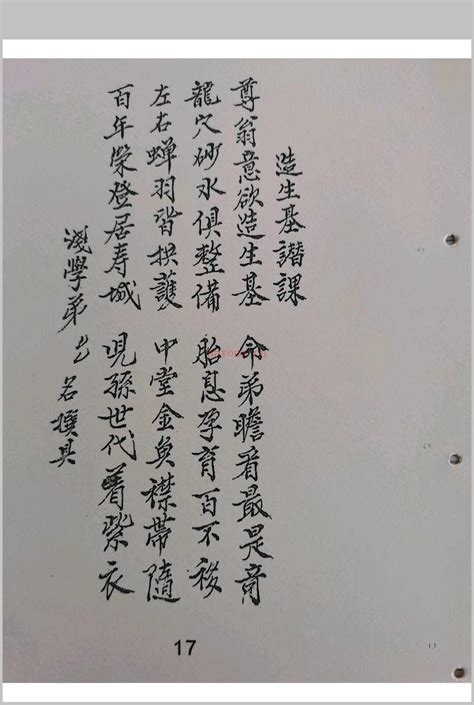 造生基譛課
尊翁意欲造生基 命弟瞻看最是奇
龍穴砂水俱整備 胎息孕育百不移
左右蟬羽皆拱護 中堂金魚襟帶隨
百年榮登居寿城 児孫世代着紫衣
淺學弟 名撰具
17